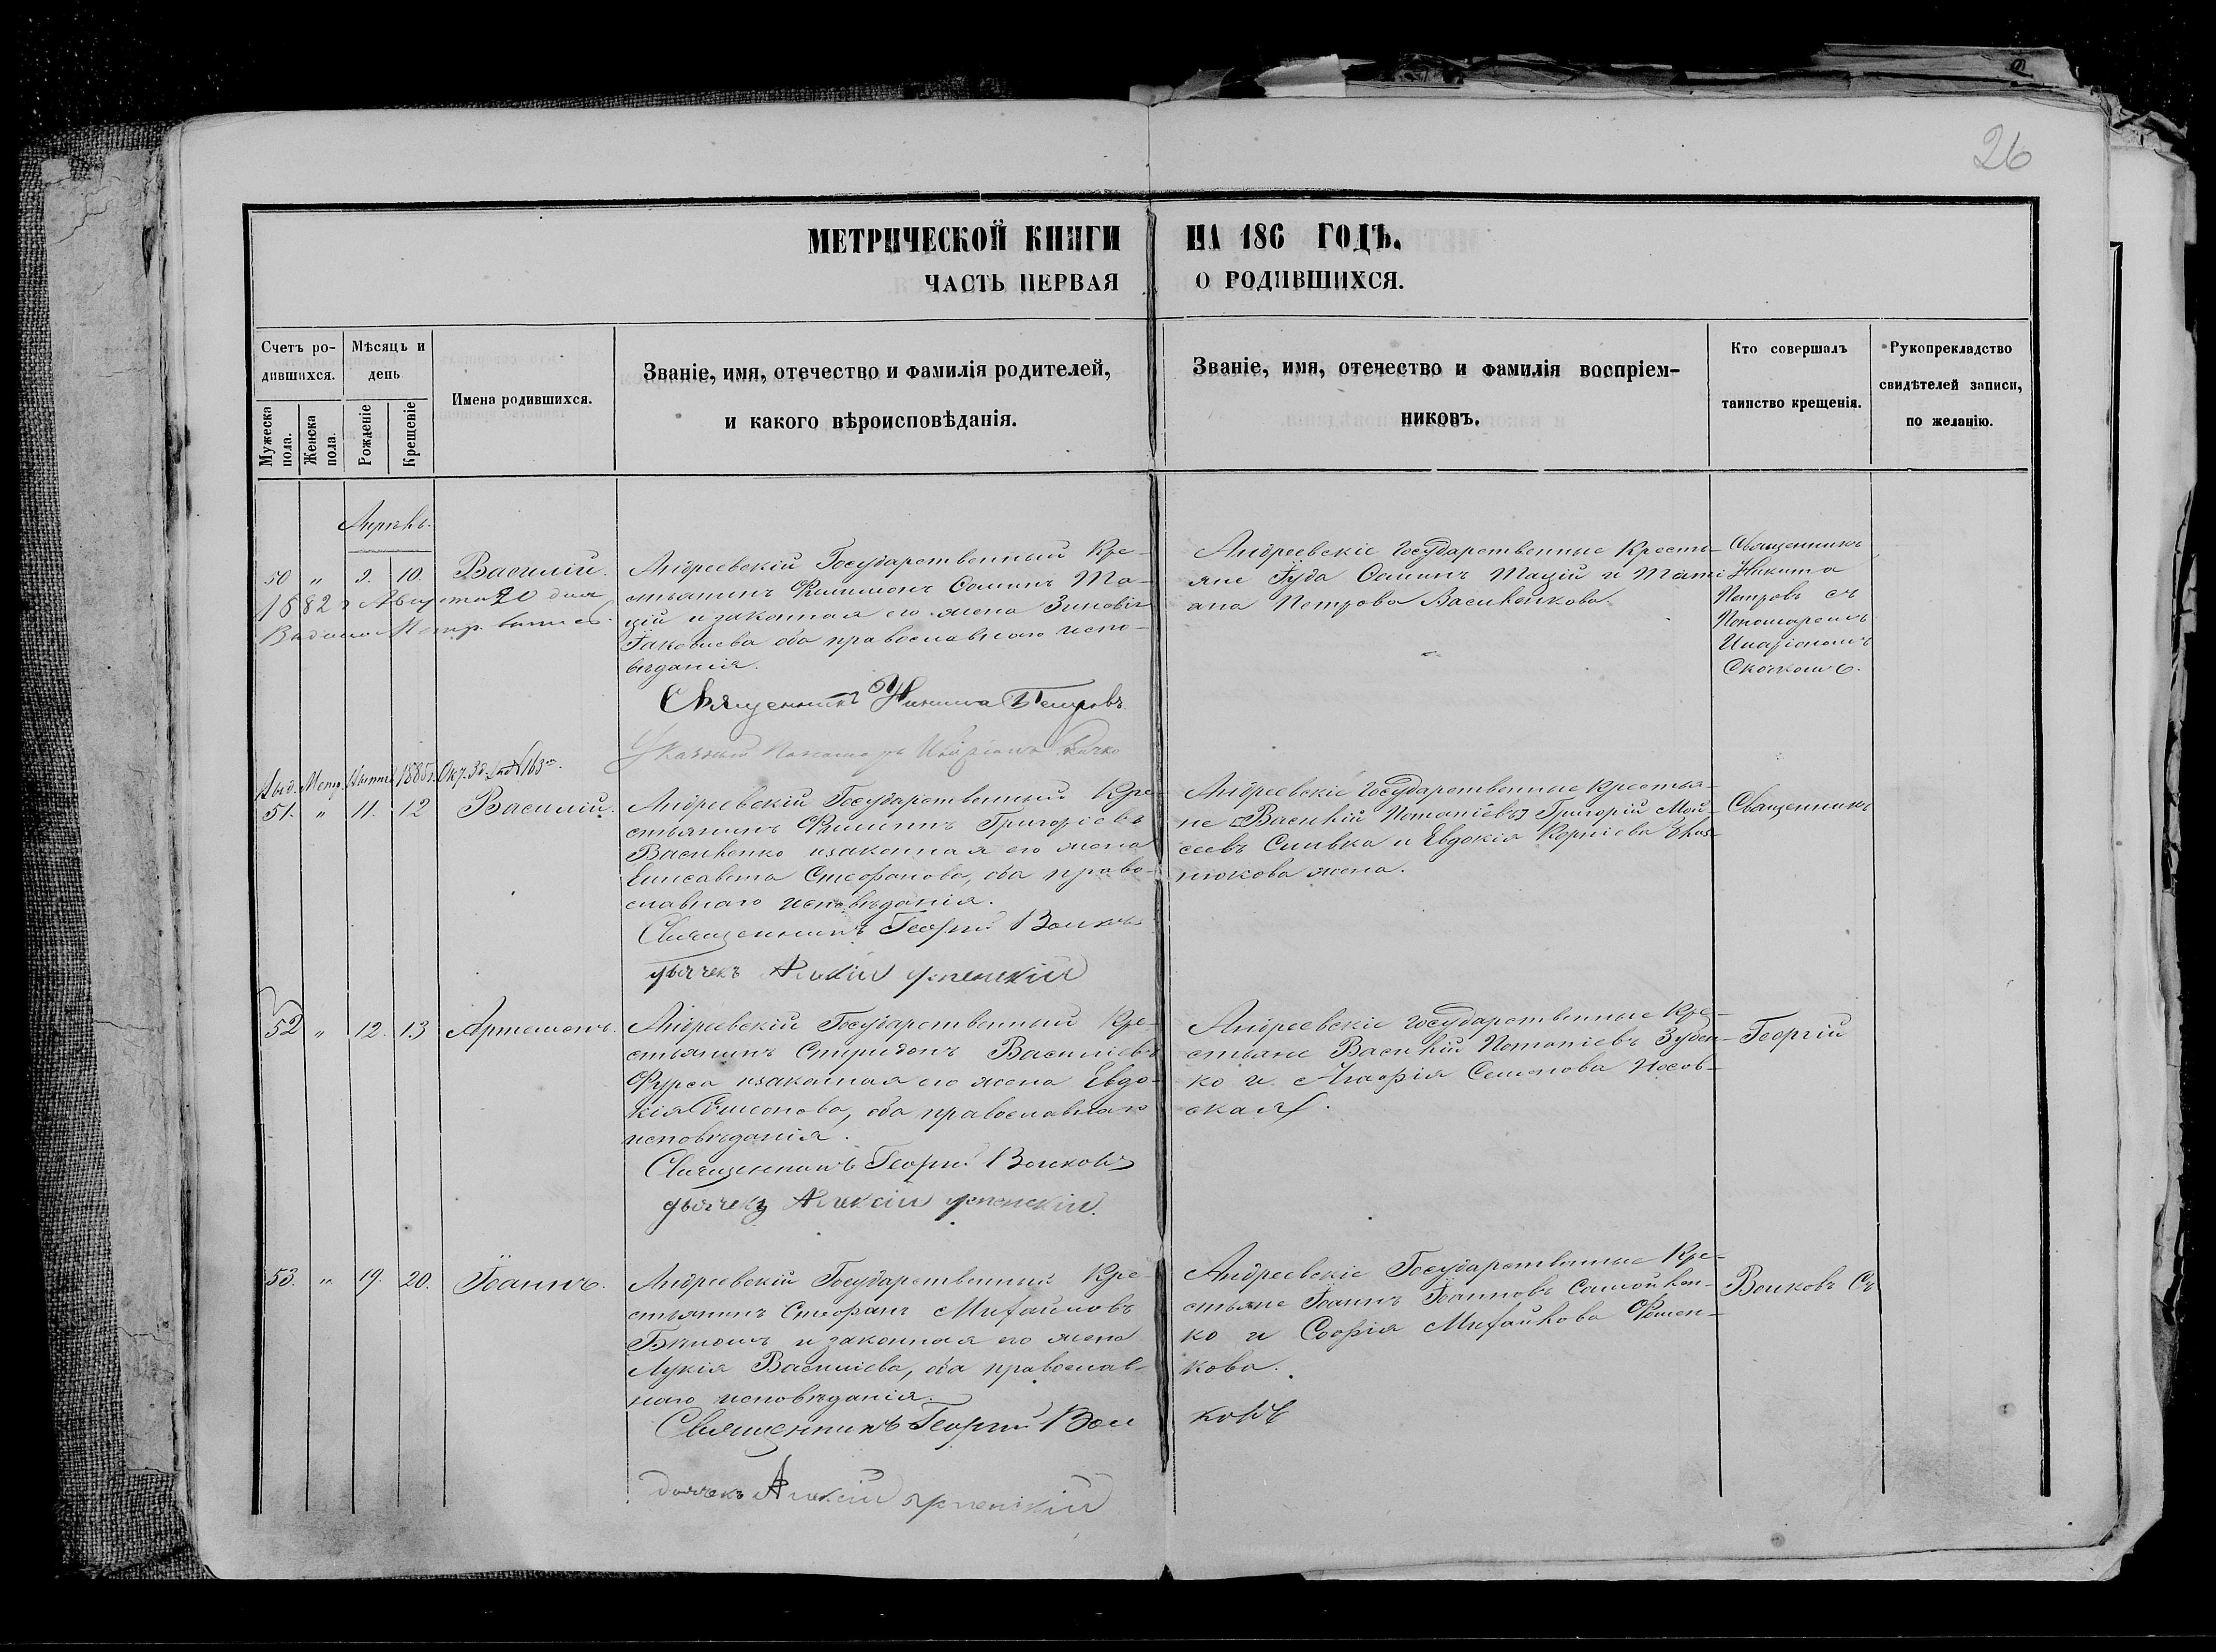 26
МЕТРИЧЕСКОЙ КНИГИ НА 186 ГОДЪ.
ЧАСТЬ ПЕРВАЯ О РОДИВШИХСЯ.
Счетъ ро-
дившихся.
Мужеска
пола.
Женска
пола.
Мѣсяцъ и
день
Рожденіе
Крещеніе
Имена родившихся.
Званіе, имя, отечество и фамилія родителей,
и какого вѣроисповѣданія.
Званіе, имя, отечество и фамилія воспріем-
никовъ.
Кто совершалъ
таинство крещенія.
Рукоприкладство
свидѣтелей записи,
по желанію.
Апрѣль.
50 " 9. 10. Василій.
1882 г Августа 20 дня
Выдано Метр.
Андреевскій Государственный Кре-
стьянинъ Филимонъ Ма-
цій и законная его жена Зиновія
Іаковлева оба православнаго испо-
вѣданія.
Священникъ Никита Петровъ
Указный Пономарь Иларіонъ
Андреевскіе Государственные Кресть-
яне Іуда Мацій и Тати-
ана Петрова Васильчкова.
Священникъ
Никита
Петровъ съ
Пономаремъ
Иларіономъ
Выд. Метр. 1885 г. Окт. 3 д. № 163
51. " 11. 12 Василій.
Андреевскій Государственный Кре-
стьянинъ Филиппъ Григоріевъ
Василенко и законная его жена
Елисавета Стефанова, оба право-
славнаго исповѣданія.
Священникъ Георгій Волковъ
дьячекъ Алексій Успенскій
Андреевскіе Государственные Крестья-
не Василій Потапіевъ Григорій Мои-
сеевъ Сливка и Евдокія Корніева
нюкова жена.
Священникъ
52 " 12. 13 Артемонъ.
Андреевскій Государственный Кре-
стьянинъ Спиридонъ Василіевъ
Фурса и законная его жена Евдо-
кія Симеонова, оба православнаго
исповѣданія.
Священникъ Георгій Волковъ
дьячекъ Алексій Успенскій.
Андреевскіе Государственные Кре-
стьяне Василій Потапіевъ Зубен-
ко и Агафія Семенова Носов-
ская.
Георгій
53. " 19. 20. Іоаннъ.
Андреевскій Государственный Кре-
стьянинъ Стефанъ Михайловъ
и законная его жена
Лукія Василіева, оба православ-
наго исповѣданія.
Священникъ Георгій Волковъ
дьячекъ Алексій Успенскій
Андреевскіе Государственные Кре-
стьяне Іоаннъ Іоанновъ Самойлен-
ко и Софія Михайлова Фомен-
кова.
Волковъ Съ